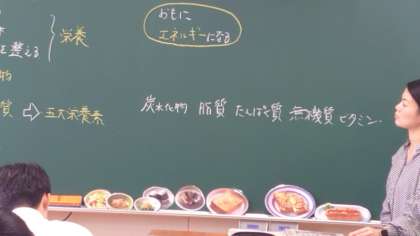 を整える
栄養
物
質 ⇨ 五大栄養素
おもに
エネルギーになる
炭水化物 脂質 たんぱく質 無機質 ビタミン.